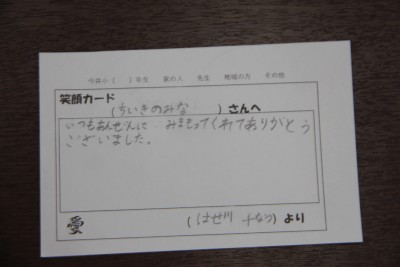 今井小（　　）年生　家の人　先生　地域の方　その他
笑顔カード
（ちいきのみな　　　）さんへ
いつもあんぜんに、みまもってくれてありがとう
ございました。
愛
（はせ川　　）より